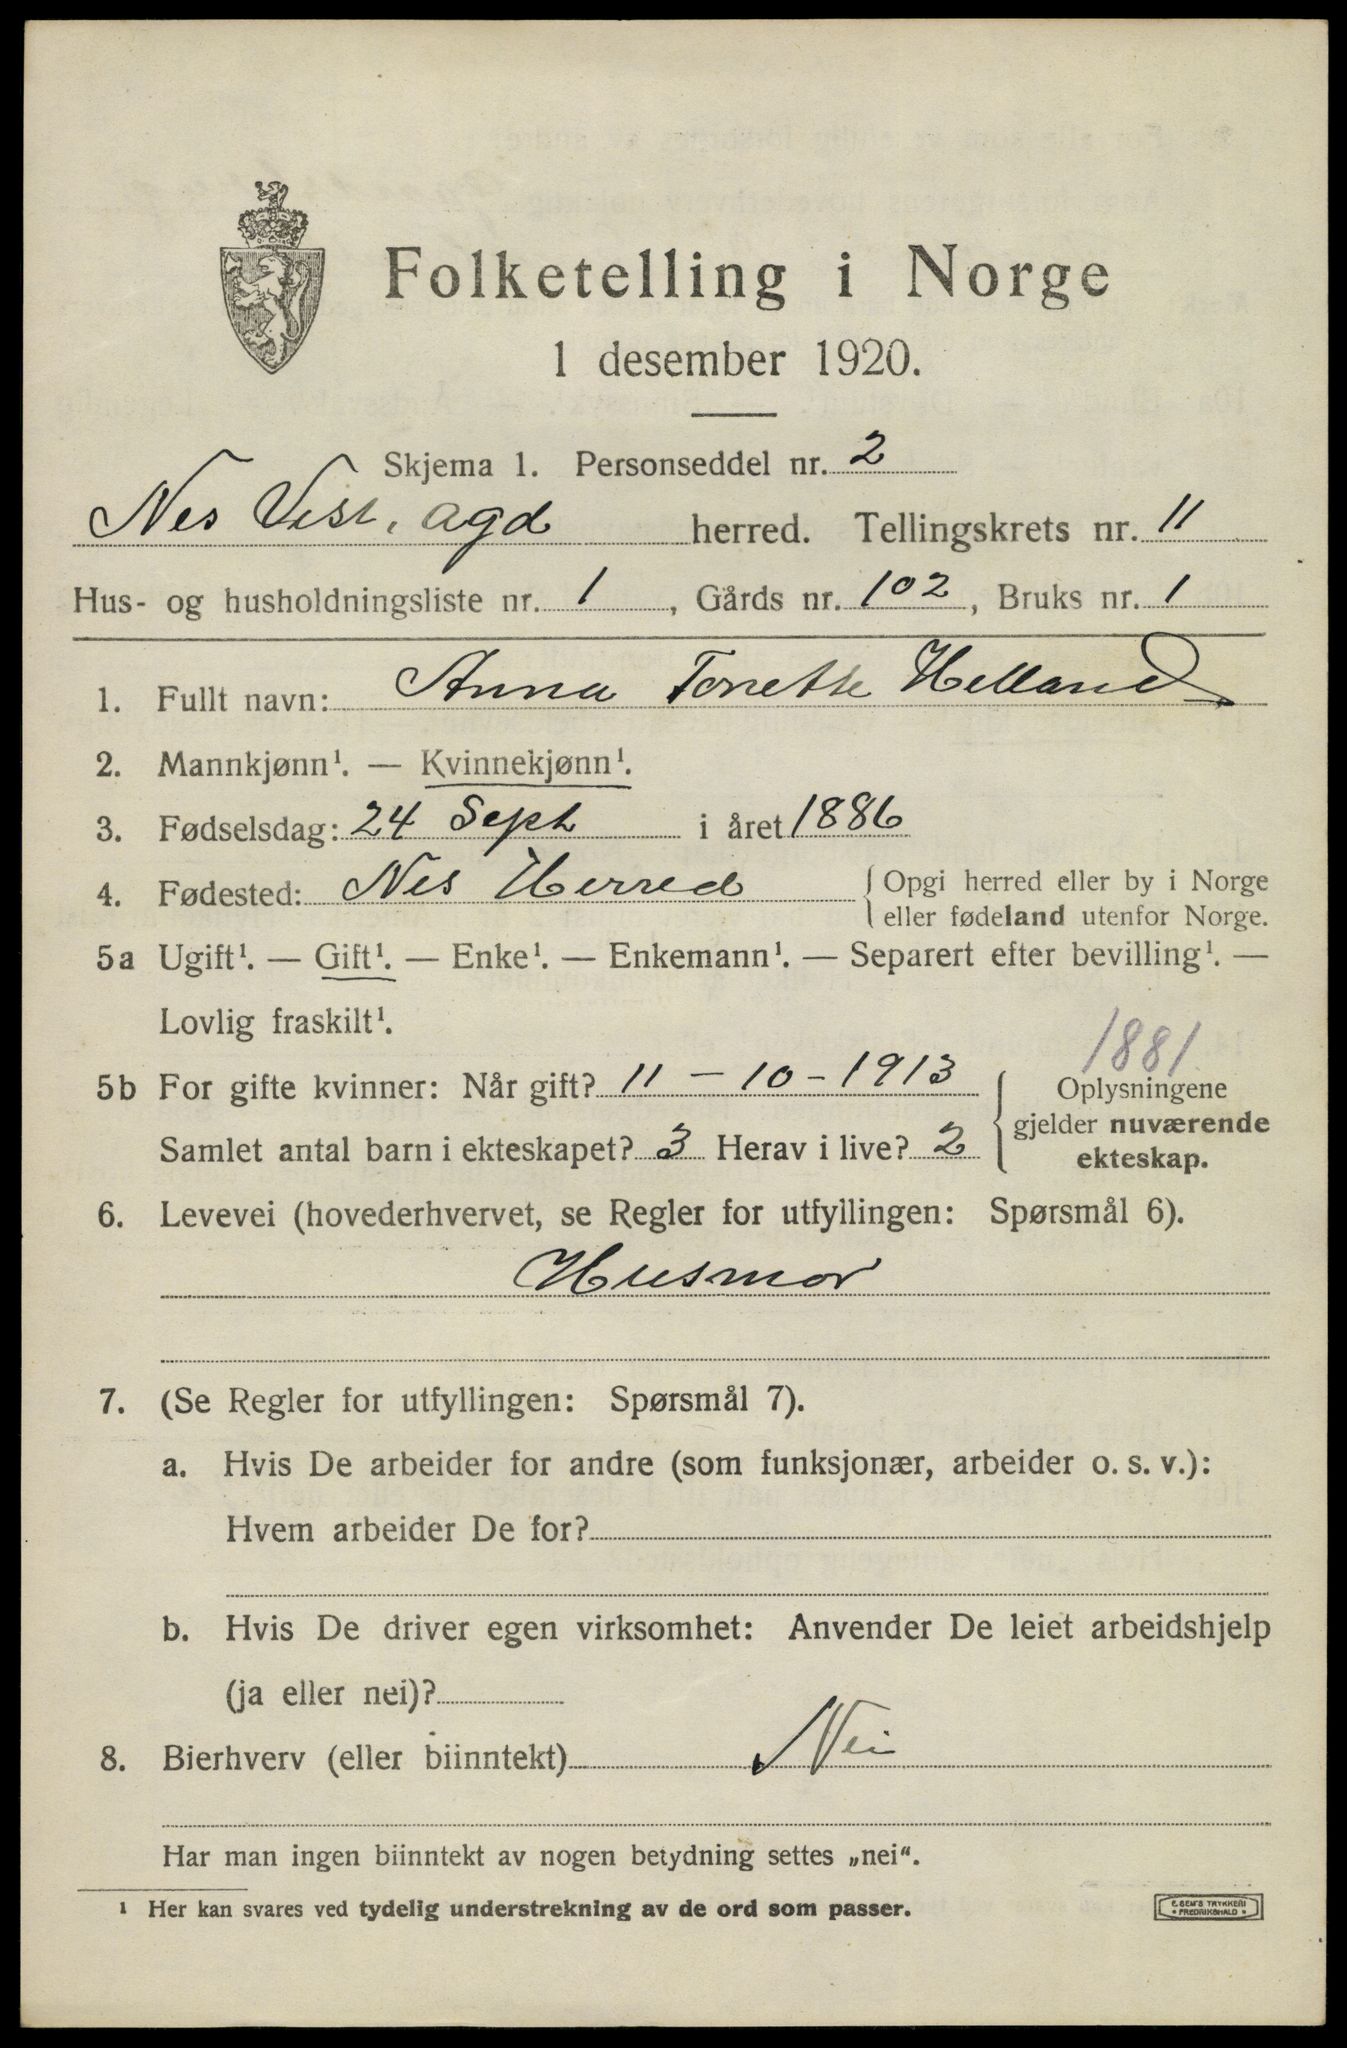 Folketelling i Norge
1 desember 1920.
Skjema 1. Personseddel nr. 2
Nes Vest. agd herred. Tellingskrets nr. 11
Hus- og husholdningsliste nr. 1, Gårds nr. 102, Bruks nr. 1
1. Fullt navn: Anna Tonette Helland
2. Mannkjønn¹. — Kvinnekjønn¹.
3. Fødselsdag: 24 Sept i året 1886
4. Fødested: Nes Herred { Opgi herred eller by i Norge
eller fødeland utenfor Norge.
5a Ugift¹. — Gift¹. — Enke¹. — Enkemann¹. — Separert efter bevilling¹. —
Lovlig fraskilt¹.
1881.
5b For gifte kvinner: Når gift? 11 - 10 - 1913
Samlet antal barn i ekteskapet? 3 Herav i live? 2
{ Oplysningene
gjelder nuværende
ekteskap.
6. Levevei (hovederhvervet, se Regler for utfyllingen: Spørsmål 6).
Husmor
7. (Se Regler for utfyllingen: Spørsmål 7).
a. Hvis De arbeider for andre (som funksjonær, arbeider o. s. v.):
Hvem arbeider De for?
b. Hvis De driver egen virksomhet: Anvender De leiet arbeidshjelp
(ja eller nei)?
8. Bierhverv (eller biinntekt) Nei
Har man ingen biinntekt av nogen betydning settes „nei".
¹ Her kan svares ved tydelig understrekning av de ord som passer.
E. SEM'S TRYKKERI
• FREDRIKSHALD •